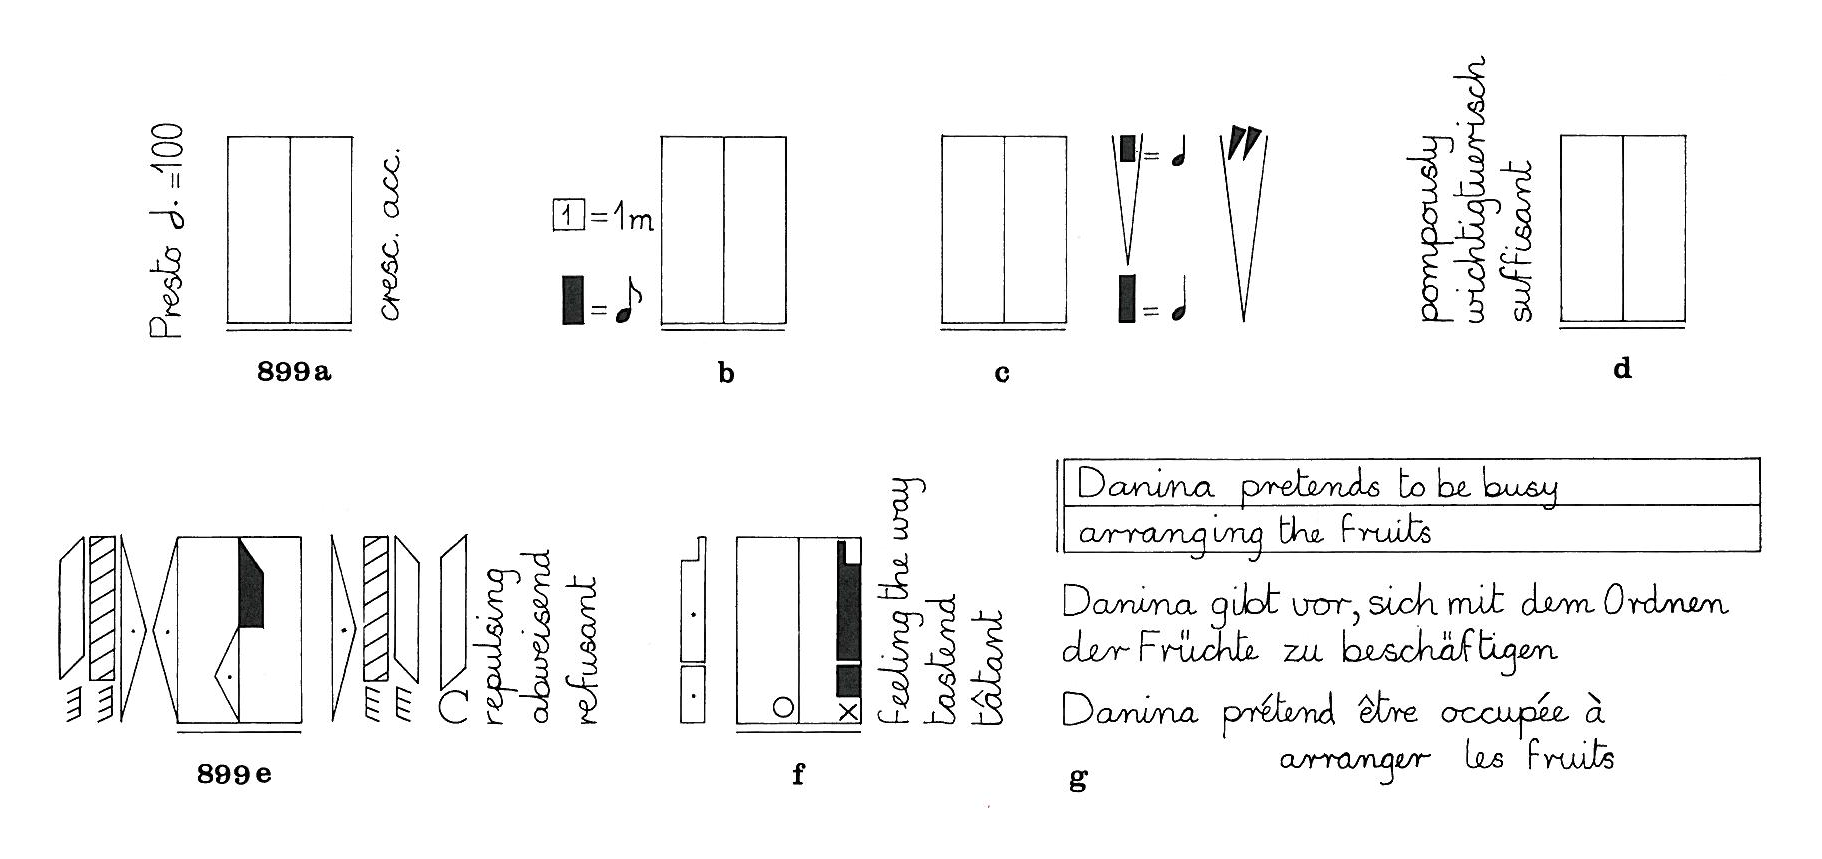 Presto 𝅗𝅥. =100
cresc. acc.
899a
1 = 1m
= ♪
b
= ♩
= ♩
c
pompously
wichtigtuerisch
suffisant
d
repulsing
abweisend
refusant
899e
feeling the way
tastend
tâtant
f
Danina pretends to be busy
arranging the fruits
Danina gibt vor, sich mit dem Ordnen
der Früchte zu beschäftigen
Danina prétend être occupée à
arranger les fruits
g